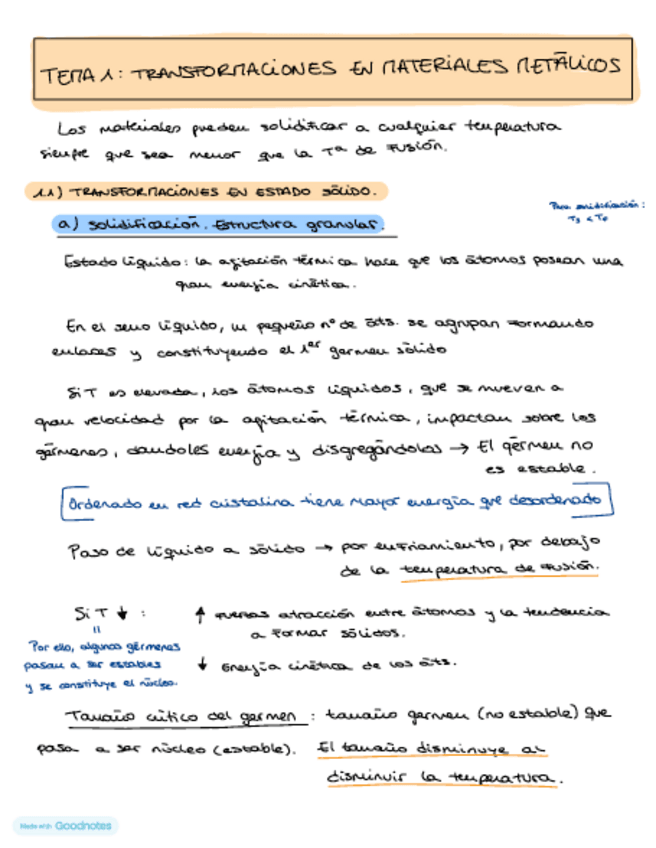 TEMA 1: TRANSFORMACIONES EN MATERIALES METÁLICOS
Los materiales pueden solidificar a cualquier temperatura
siempre que sea menor que la Tª de fusión.
1.1) TRANSFORMACIONES EN ESTADO SÓLIDO.
Para solidificación:
Ts < Tf
a) Solidificación. Estructura granular.
Estado líquido: la agitación térmica hace que los átomos posean una
gran energía cinética.
En el seno líquido, un pequeño nº de áts. se agrupan formando
enlaces y constituyendo el 1er germen sólido
Si T es elevada, los átomos líquidos, que se mueven a
gran velocidad por la agitación térmica, impactan sobre los
gérmenes, dándoles energía y disgregándolos → El gérmen no
es estable.
[Ordenado en red cristalina tiene mayor energía que desordenado]
Paso de líquido a sólido → por enfriamiento, por debajo
de la temperatura de fusión.
Si T ↓ : ↑ fuerzas atracción entre átomos y la tendencia
a formar sólidos.
Por ello, algunos gérmenes
pasan a ser estables
y se constituye el núcleo.
↓ Energía cinética de los áts.
Tamaño crítico del germen : tamaño germen (no estable) que
pasa a ser núcleo (estable). El tamaño disminuye al
disminuir la temperatura.
Made with Goodnotes